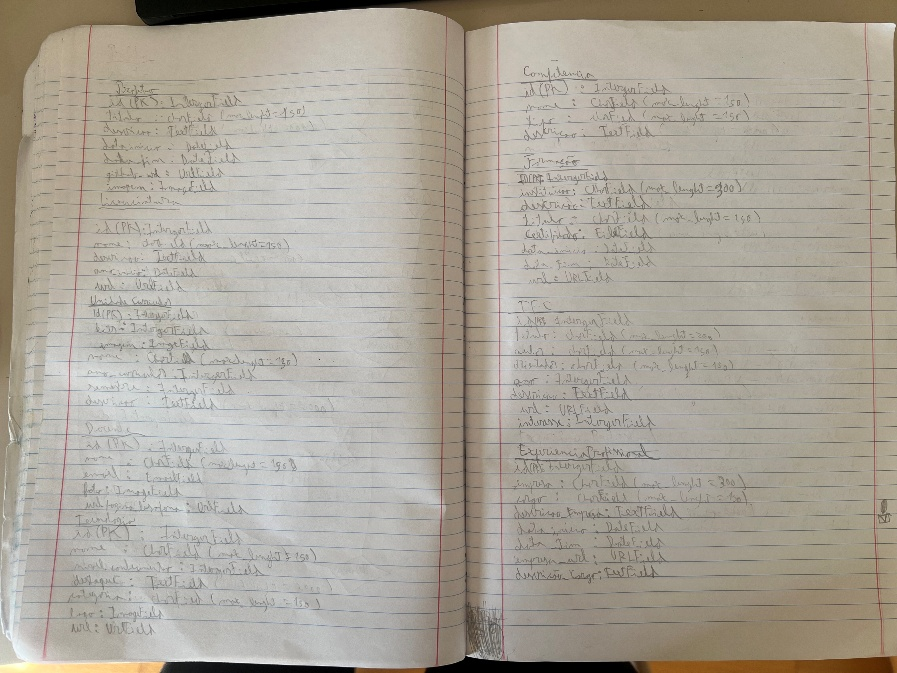 id (PK): IntergerField
titulo : CharField (max_lenght = 150)
descricao : TextField
data_inicio : DateField
data_fim : DateField
github_url : UrlField
imagem : ImageField
Licenciatura
id (PK): IntergerField
nome : CharField (max_lenght = 150)
descricao : TextField
DateField
url : UrlField
Unidade Curricular
id (PK) : IntergerField
IntergerField
imagem : ImageField
nome : (max_lenght = 150)
ano_curricular : IntergerField
semestre : IntergerField
descricao : TextField
Docente
id (PK) : IntergerField
nome : CharField (max_lenght = 150)
email : EmailField
foto : ImageField
UrlField
Tecnologia
id (PK) : IntergerField
nome : CharField (max_lenght = 150)
IntergerField
destaque : TextField
categoria : CharField (max_lenght = 150)
logo : ImageField
url : UrlField
Competencia
id (PK) : IntergerField
nome : CharField (max_lenght = 150)
tipo : CharField (max_lenght = 150)
descriçao : TextField
Formação
id(PK): IntergerField
instituicao : CharField (max_lenght = 300)
descricao : TextField
titulo : CharField (max_lenght = 150)
certificado : FileField
data_inicio : DateField
data_fim : DateField
url : URLField
TFC
id(PK): IntergerField
titulo : CharField (max_lenght = 200)
autor : CharField (max_lenght = 150)
CharField (max_lenght = 150)
ano : IntergerField
descricao : TextField
url : URLField
interesse : IntergerField
Experiencia Profissional
id(PK): IntergerField
empresa : CharField (max_lenght = 300)
cargo : CharField (max_lenght = 150)
descricao_Empresa : TextField
data_inicio : DateField
data_fim : DateField
empresa_url : URLField
descrição_Cargo : TextField